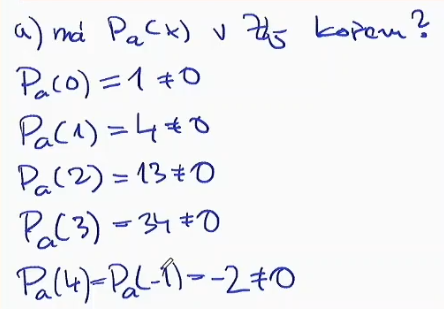 a) má Pa(x) v ℤ5 kořen?
Pa(0)=1≠0
Pa(1)=4≠0
Pa(2)=13≠0
Pa(3)=34≠0
Pa(4)=Pa(-1)=-2≠0